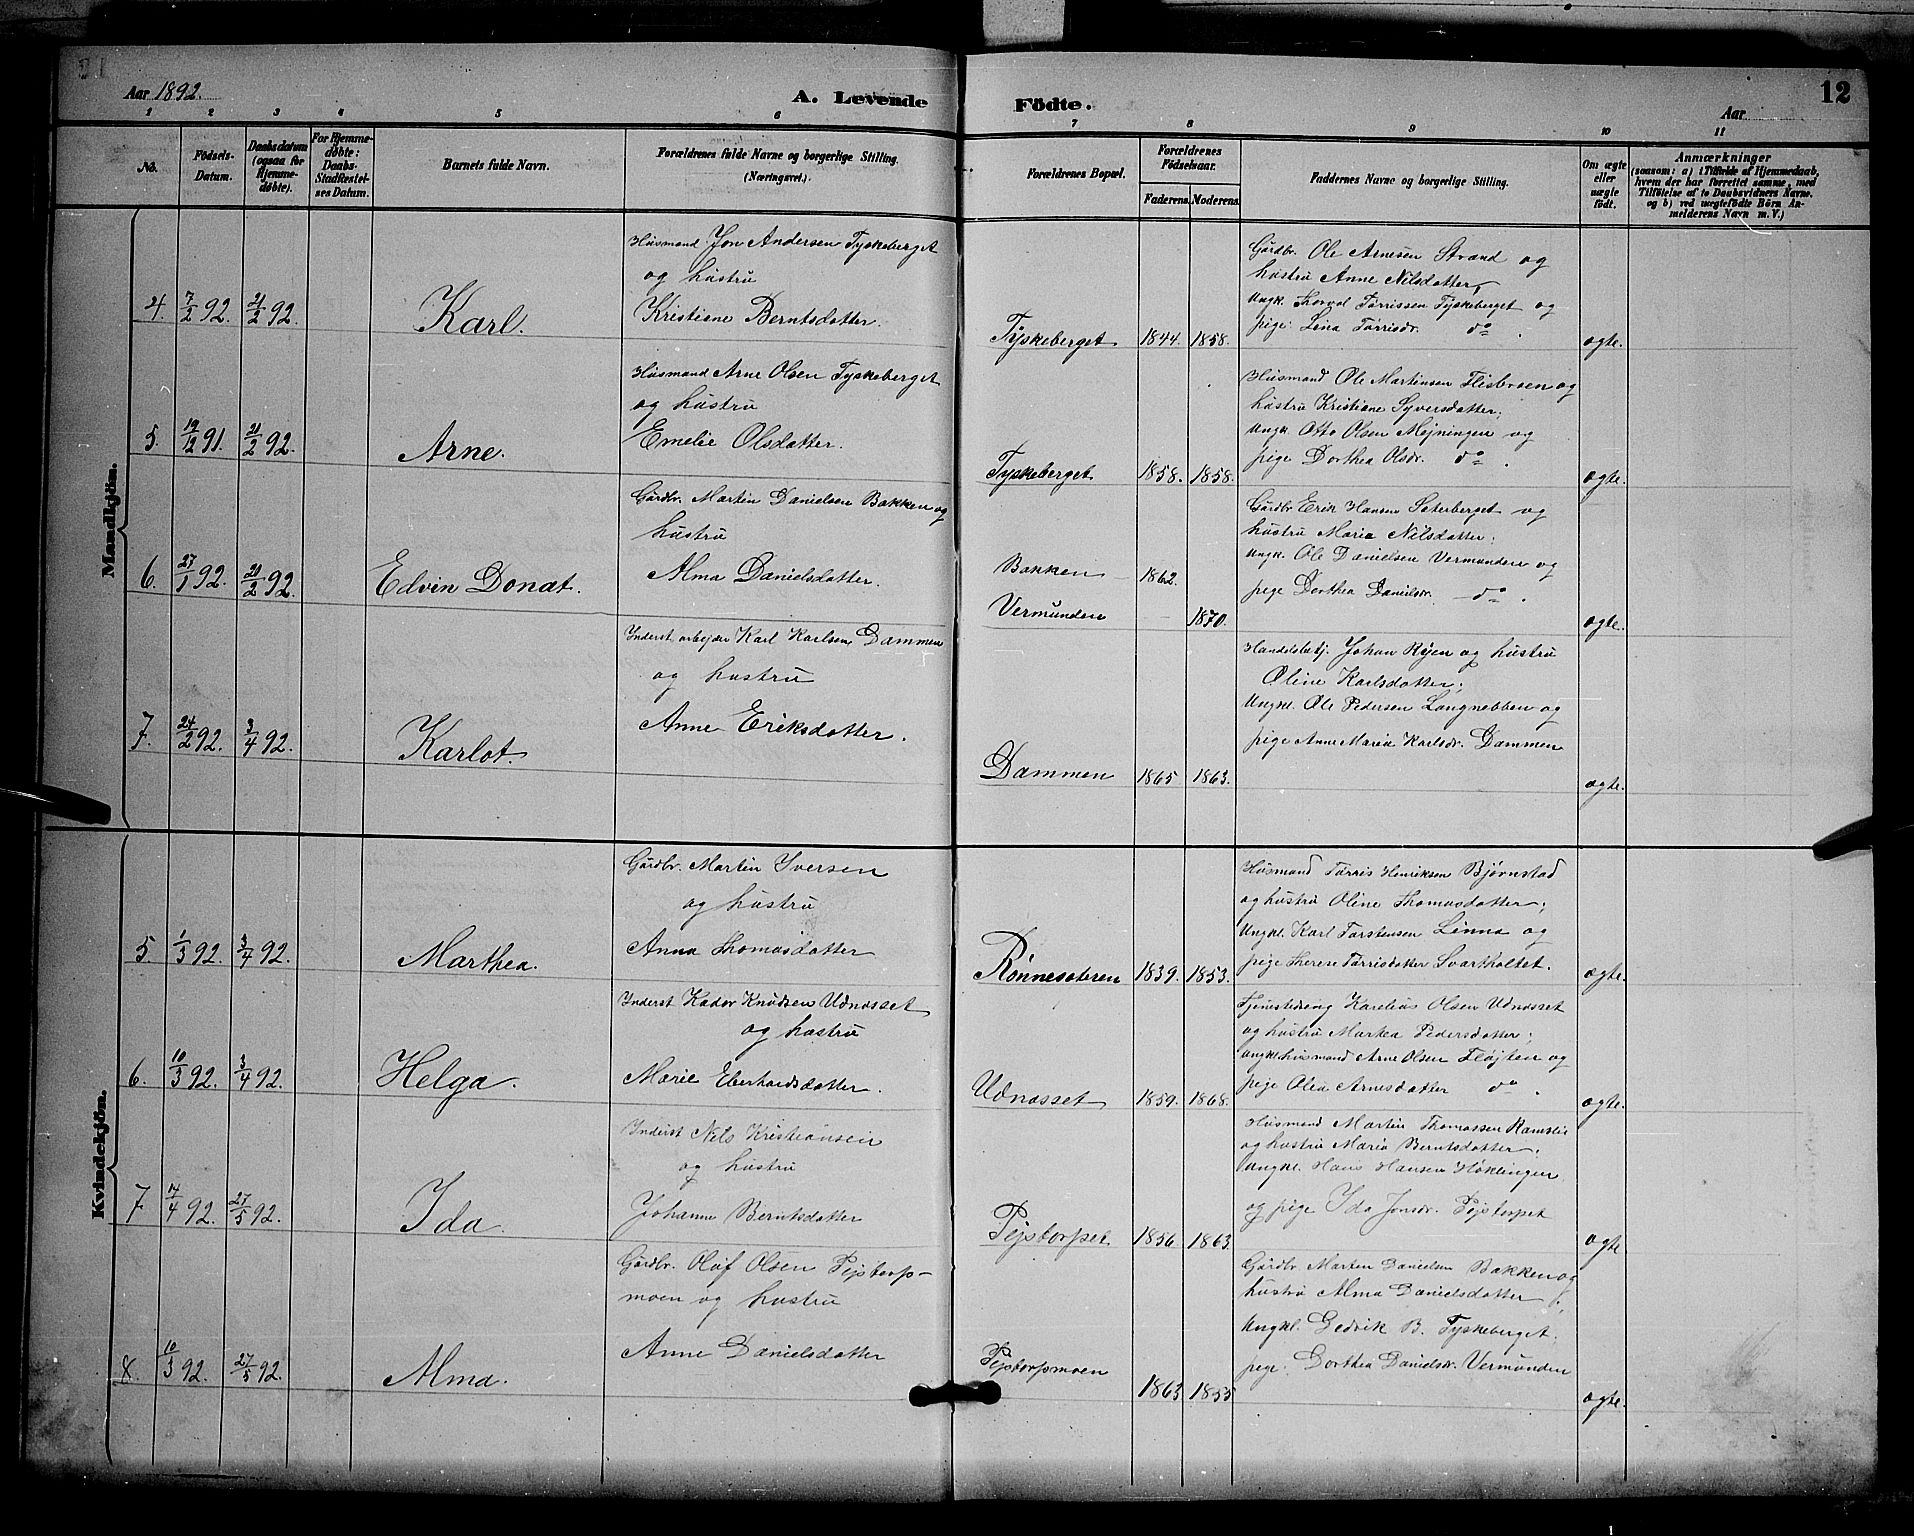 Aar 1892.
A. Levende Födte.
Aar
12
1 2 3 4 5 6 7 8 9 10 11
No.
Födsels-Datum.
Daabsdatum (ogsaa for Hjemmedøbte).
For Hjemmedøbte: Daabs-Stadfæstelses Datum.
Barnets fulde Navn.
Forældrenes fulde Navne og borgerlige Stilling. (Næringsvei.)
Forældrenes Bopæl.
Forældrenes Födselsaar.
Faderens. Moderens.
Faddernes Navne og borgerlige Stilling.
Om ægte eller uægte født.
Anmærkninger
(saasom: a) i Tilfælde af Hjemmedaab, hvem der har forrettet samme, med Tilføielse af to Daabsvidners Navne, og b) ved uægtefödte Börn Anmelderens Navn m. V.)
Mandkjön.
4. 7/2 92. 21/2 92. Karl.
Husmand Jon Andersen Tyskeberget
og hustru
Kristiane Berntsdatter.
Tyskeberget 1844. 1858.
Gårdbr. Ole Arnesen Strand og
hustru Anne Nilsdatter,
Ungk. Thorval Tørrissen Tyskeberget og
pige: Lina Tørrisdr. do.
ægte.
5. 19/12 91. 21/2 92. Arne.
Husmand Arne Olsen Tyskeberget
og hustru
Emelie Olsdatter.
Tyskeberget 1858. 1858.
Husmand Ole Martinsen Flisbroen og
hustru Kristiane Syversdatter.
Ungk. Otto Olsen Mejningen og
pige Dorthea Olsdr. do.
ægte.
6. 27/1 92. 21/2 92. Edvin Donat.
Gårdbr. Martin Danielsen Bakken og
hustru
Alma Danielsdatter.
Bakken 1862.
Vermunden 1870.
Gårdbr Erik Hansen Seterberget og
hustru Maria Nilsdatter;
Ungk. Ole Danielsen Vermunden og
pige Dorthea Danielsdr. do.
ægte.
7. 24/2 92. 3/4 92. Karlot.
Inderst arbejder Karl Karlsen Dammen
og hustru
Anne Eriksdatter.
Dammen 1865 1863.
Handelsbetj. Johan Ryen og hustru
Oline Karlsdatter;
Ungkl. Ole Pedersen Langnebben og
pige Anne Maria Karlsdr. Dammen
ægte.
Kvindekjön.
5. 1/3 92. 3/4 92. Marthea.
Gårdbr. Martin Iversen
og hustru
Anna Thomasdatter
Rønnesæteren 1839. 1853.
Husmand Tørris Henriksen Bjørnstad
og hustru Oline Thomasdatter;
Ungkl. Karl Torstensen Linna og
pige Therese Tørrisdatter Svartholtet.
ægte.
6. 10/3 92. 3/4 92. Helga.
Inderst Kador Knudsen Udnæsset
og hustru
Marie Eberhardsdatter.
Udnæsset 1859. 1868.
Tjenestedreng Karelius Olsen Udnæsset
og hustru Marthea Pedersdatter;
Ungkl. husmand Arne Olsen Fløjten og
pige Olea Arnesdatter do.
ægte.
7. 14/4 92. 27/5 92. Ida.
Inderst Nils Kristiansen
og hustru
Johanne Berntsdatter
Pejstorpet 1856. 1863.
Husmand Martin Thomassen Ramslie
og hustru Maria Berntsdatter;
Ungkl. Hans Hansen Høklingen
og pige Ida Jonsdr. Pejstorpet
ægte
8. 10/3 92. 27/5 92. Alma.
Gårdbr. Olof Olsen Pejstorp-
moen og hustru
Anne Danielsdatter
Pejstorpmoen 1863 1855
Gårdbr. Marten Danielsen Bakken og
hustru Alma Danielsdatter;
Ungkl. Ludvik B. Tyskeberget.
pige. Dorthea Danielsdr. Vermunden
ægte.